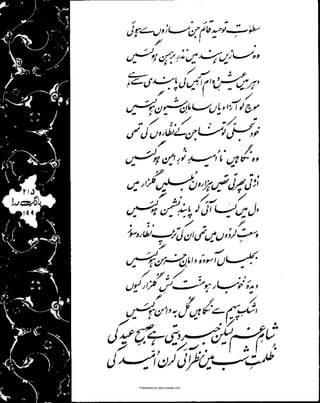 سطوتِ توحید قائم جن نمازوں سے ہوئی
وہ نمازیں ہند میں نذرِ برہمن ہو گئیں
دہر میں عیشِ دوام آئیں کی پابندی سے ہے
موج کو آزادیاں سامانِ شیون ہو گئیں
خود تجلی کو تمنا جن کے نظاروں کی تھی
وہ نگاہیں ناامیدِ نورِ ایمن ہو گئیں
اڑتی پھرتی تھیں ہزاروں بلبلیں گلزار میں
دل میں کیا آئی کہ پابندِ نشیمن ہو گئیں
وسعتِ گردوں میں تھی ان کی تڑپ نظارہ سوز
بجلیاں آسودۂ دامانِ خرمن ہو گئیں
دیدۂ خونبار ہو منت کشِ گلزار کیوں
اشکِ پیہم سے نگاہیں گل بہ دامن ہو گئیں
شامِ غم لیکن خبر دیتی ہے صبحِ عید کی
ظلمتِ شب میں نظر آئی کرن امید کی
۲۱۵
بانگِ درا
۱۹۹